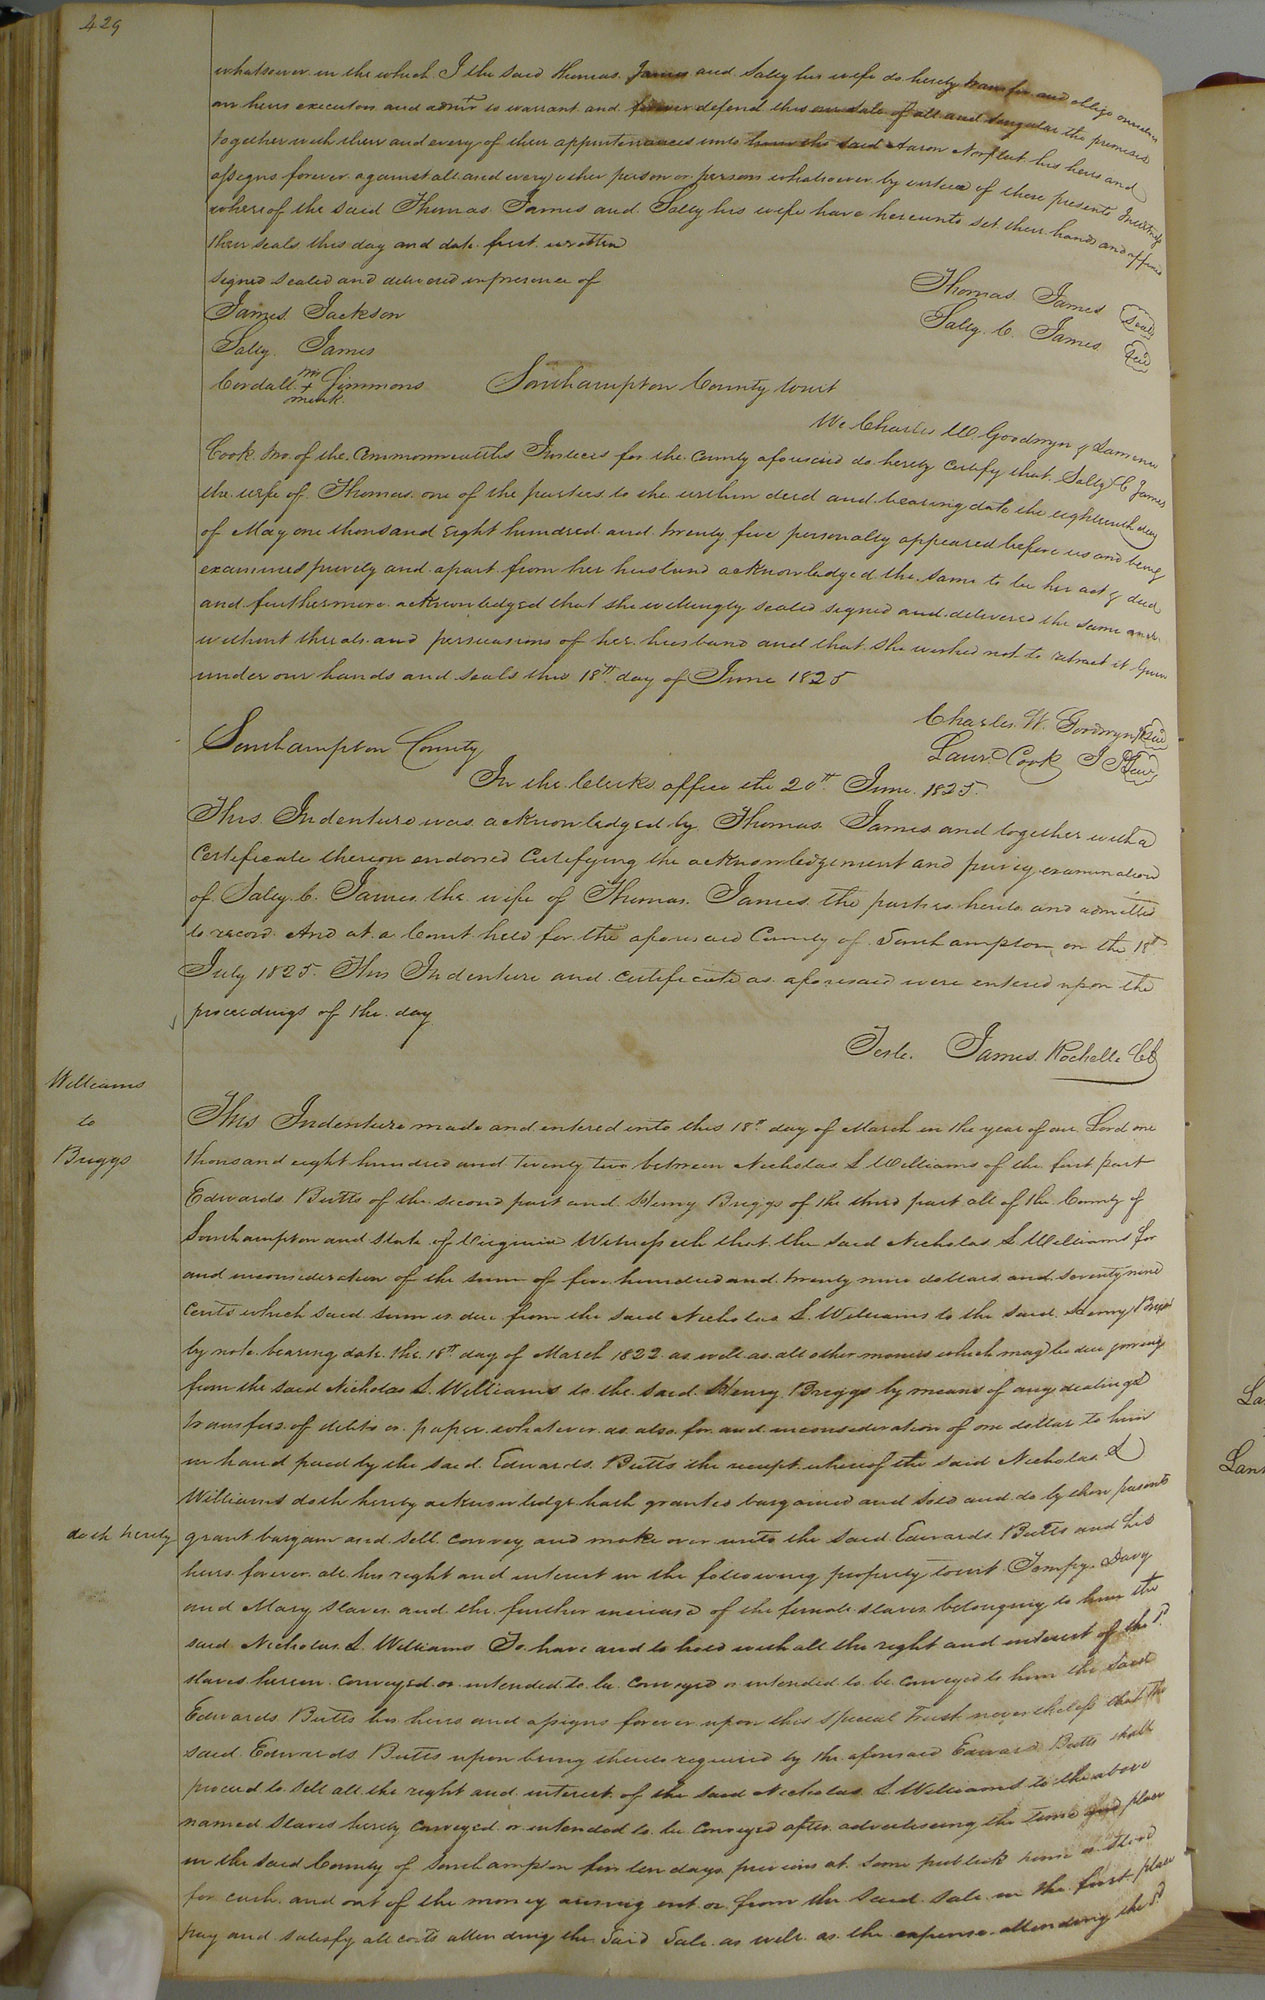 429
whatsoever in the which I the said Thomas James and Sally his wife do hereby and oblige
our heirs executors and admrs to warrant and forever defend this our sale of all and singular the premises
together with them and every of their appurtenances unto him the said Aaron Norfleet his heirs and
assigns forever against all and every other person or persons whatsoever by virtue of these presents In witness
whereof the said Thomas James and Sally his wife have hereunto set their hands and affixed
their seals this day and date first written
Signed sealed and delivered in presence of
Thomas James Seal
James Jackson
Sally C. James Seal
Sally James
Cordall his + mark Simmons
Southampton County Court
We Charles W. Goodwyn &
Cook two of the Commonwealths Justices for the County aforesaid do hereby certify that Sally C James
the wife of Thomas one of the parties to the within deed and bearing date the eighteenth day
of May one thousand eight hundred and twenty five personally appeared before us and being
examined privily and apart from her husband acknowledged the same to be her act & deed
and furthermore acknowledged that she willingly sealed signed and delivered the same
without threats and persuasions of her husband and that she wished not to retract it Given
under our hands and seals this 18th day of June 1825
Charles W. Goodwyn Seal
Southampton County
Laurd Cook J P Seal
In the Clerks office the 20th June 1825.
This Indenture was acknowledged by Thomas James and together with a
Certificate thereon endorsed Certifying the acknowledgement and privy examination
of Sally C. James the wife of Thomas James the parties hereto and admitted
to record. And at a Court held for the aforesaid County of Southampton on the 18th
July 1825. This Indenture and certificate as aforesaid were entered upon the
proceedings of the day
Teste. James Rochelle CC
Williams
to
Briggs
This Indenture made and entered into this 18th day of March in the year of our Lord one
thousand eight hundred and twenty two between Nicholas S Williams of the first part
Edwards Butts of the second part and Henry Briggs of the third part all of the County of
Southampton and State of Virginia Witnesseth that the said Nicholas S. Williams for
and in consideration of the sum of five hundred and twenty nine dollars and seventy nine
cents which said sum is due from the said Nicholas S. Williams to the said Henry Briggs
by note bearing date the 18th day of March 1822 as well as all other monies which may be due
from the said Nicholas S. Williams to the said Henry Briggs by means of any dealings
transfers of debts or paper whatever as also for and in consideration of one dollar to him
in hand paid by the said Edwards Butts the receipt whereof the said Nicholas S
Williams doth hereby acknowledge hath granted bargained and sold and do by these presents
doth hereby
grant bargain and sell convey and make over unto the said Edwards Butts and his
heirs forever all his right and interest in the following property towit Tempy Davy
and Mary slaves and the further increase of the female slaves belonging to him the
said Nicholas S. Williams To have and to hold with all the right and interest of the sd.
slaves herein conveyed or intended to be conveyed or intended to be conveyed to him the said
Edwards Butts his heirs and assigns forever upon this special Trust nevertheless that the
said Edwards Butts upon being thereto required by the aforesaid Edward Butts shall
proceed to sell all the right and interest of the said Nicholas S. Williams to the above
named slaves hereby conveyed or intended to be conveyed after advertiseing the time and place
in the said County of Southampton for ten days previous at some publick house or store
for cash and out of the money arising out or from the said sale in the first place
pay and satisfy all costs attending the said sale as well as the expense attending the sd